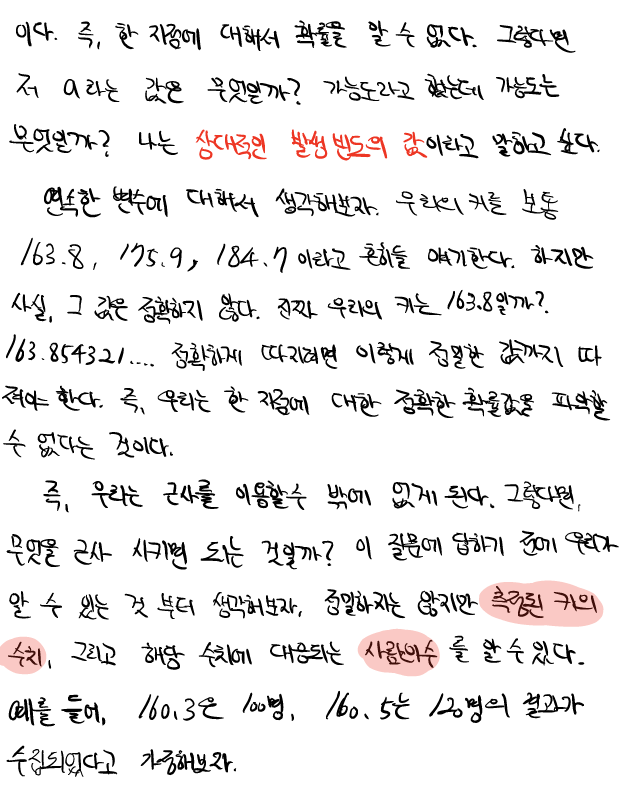 이다. 즉, 한 지점에 대해서 확률을 알 수 없다. 그렇다면
저 a라는 값은 무엇일까? 가능도라고 했는데 가능도는
무엇일까? 나는 상대적인 발생빈도의 값이라고 말하고 싶다.
연속한 변수에 대해서 생각해보자. 우리의 키를 보통
163.8, 175.9, 184.7 이라고 흔히들 얘기한다. 하지만
사실, 그 값은 정확하지 않다. 진짜 우리의 키는 163.8일까?
163.854321.... 정확하게 따지려면 이렇게 정밀한 값까지 따
져야 한다. 즉, 우리는 한 지점에 대한 정확한 확률값을 파악할
수 없다는 것이다.
즉, 우리는 근사를 이용할수 밖에 없게 된다. 그렇다면,
무엇을 근사 시키면 되는 것일까? 이 질문에 답하기 전에 우리가
알 수 있는 것 부터 생각해보자, 정밀하지는 않지만 측정된 키의
수치, 그리고 해당 수치에 대응되는 사람의수 를 알 수 있다.
예를 들어, 160.3은 100명, 160.5는 120명의 결과가
수집되었다고 가정해보자.